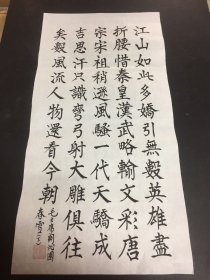 江山如此多嬌引無數英雄盡
折腰惜秦皇漢武略輸文彩唐
宗宋祖稍遜風騷一代天驕成
吉思汗只識彎弓射大雕俱往
矣數風流人物還看今朝
毛主席詞沁園
春雪